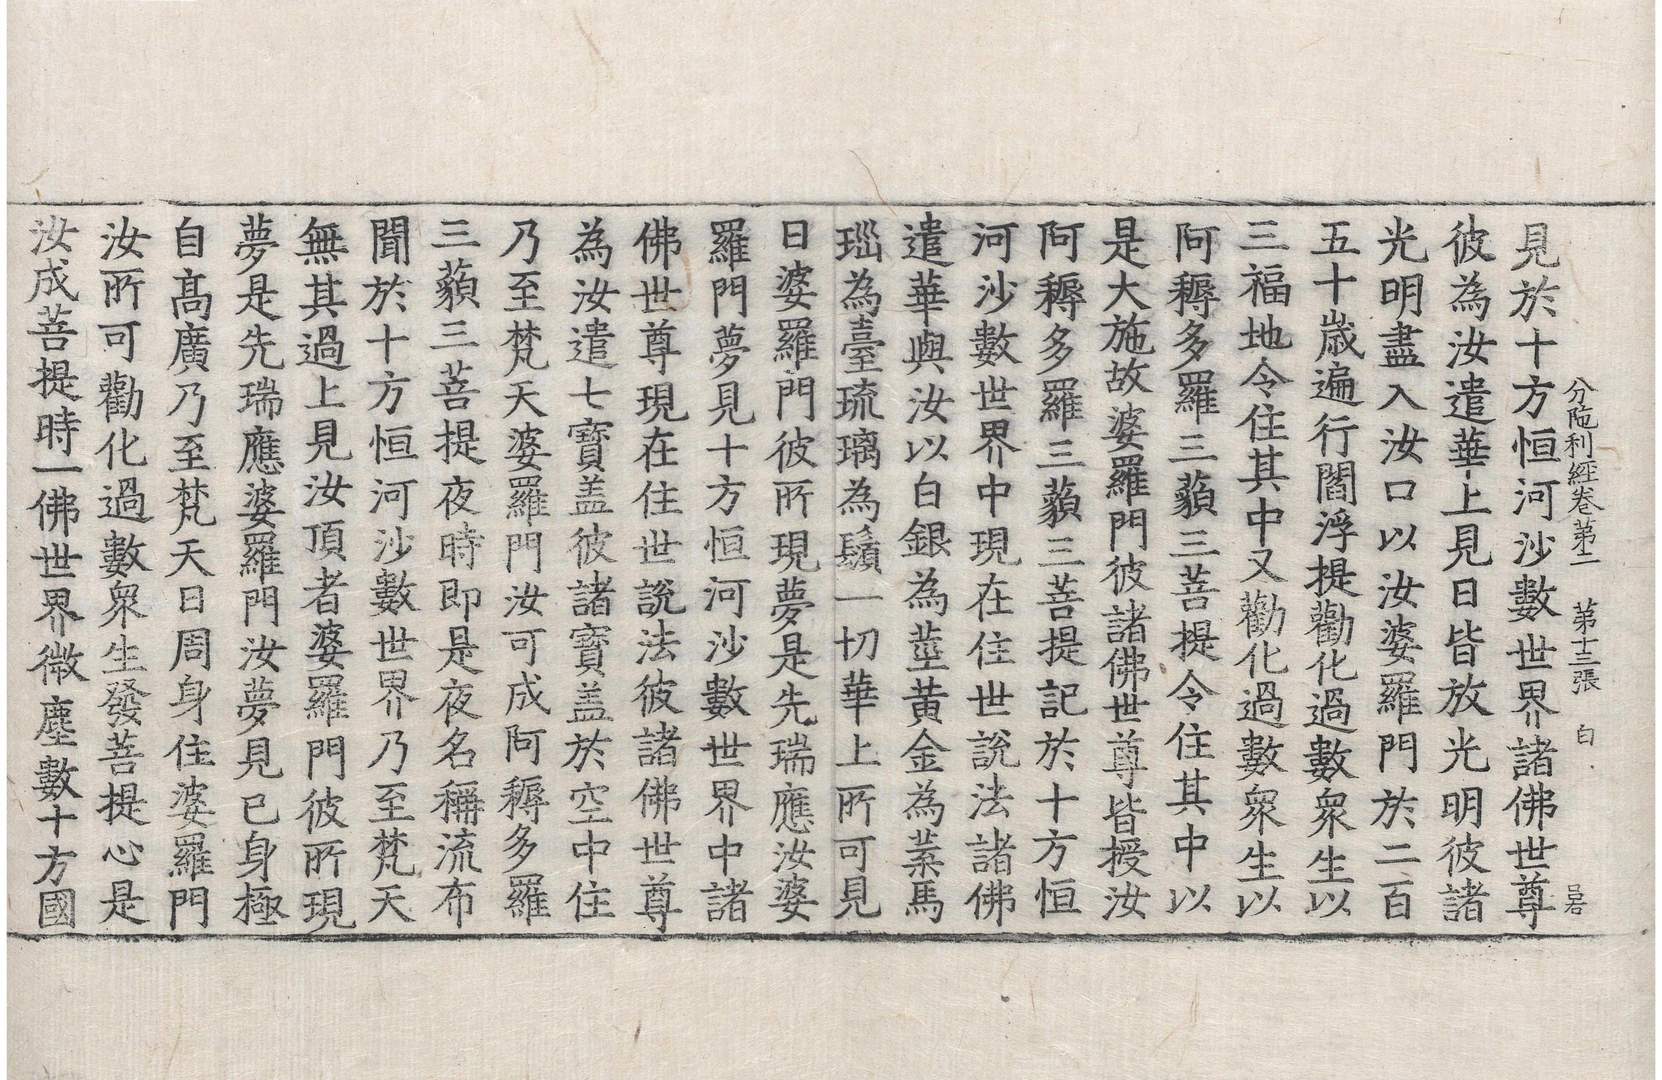 分陁利經卷第二 第十三張 白
見於十方恒河沙數世界諸佛世尊
彼為汝遣華上見日皆放光明彼諸
光明盡入汝口以汝婆羅門於二百
五十歲遍行閻浮提勸化過數衆生以
三福地令住其中又勸化過數衆生以
阿耨多羅三藐三菩提令住其中以
是大施故婆羅門彼諸佛世尊皆授汝
阿耨多羅三藐三菩提記於十方恒
河沙數世界中現在住世說法諸佛
遣華與汝以白銀為莖黃金為葉馬
瑙為臺琉璃為鬚一切華上所可見
日婆羅門彼所現夢是先瑞應汝婆
羅門夢見十方恒河沙數世界中諸
佛世尊現在住世說法彼諸佛世尊
為汝遣七寶盖彼諸寶盖於空中住
乃至梵天婆羅門汝可成阿耨多羅
三藐三菩提夜時即是夜名稱流布
聞於十方恒河沙數世界乃至梵天
無其過上見汝頂者婆羅門彼所現
夢是先瑞應婆羅門汝夢見已身極
自高廣乃至梵天日周身住婆羅門
汝所可勸化過數衆生發菩提心是
汝成菩提時一佛世界微塵數十方國